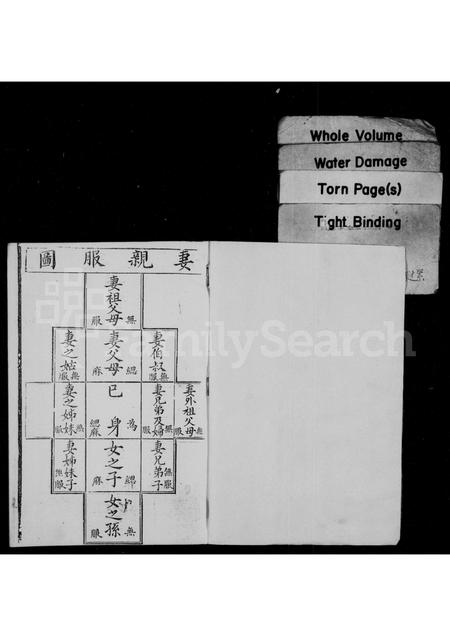 Whole Volume
Water Damage
Torn Page(s)
Tight Binding
FamilySearch
妻親服圖
妻祖父母
無服
妻伯叔
無服
妻父母
緦麻
妻之姑
無服
妻外祖父母
無服
妻兄弟及婦
無服
己身
為緦麻
妻之姊妹
無服
妻兄弟子
無服
女之子
緦麻
妻姊妹子
無服
女之孫
無服